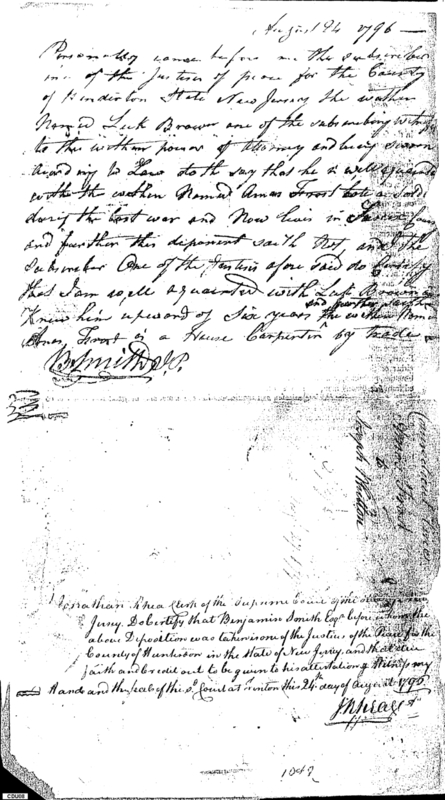 August 24 1796
Personally came before me the Subscriber
one of the Justices of peace for the County
of Hunderton State New Jersey the within
Named Luk Brown one of the subscribing witness
to the within power of attorney and being sworn
According to Law doth say that he is well aquainted
with the within Named Amas Frost
during the last war and Now lives in
and further this deponent saith Not, and I the
Subscriber One of the Justices afore said do Certify
that I am well aquainted with Luk Brown
and further
Knew him upward of Six years the within Named
Amas Frost is a House Carpenter by trade
B Smith J.P.
to
Joseph
Jonathan Rhea Clerk of the Supreme Court of the State of New
Jersey. Do certify that Benjamin Smith Esqr. before whom the
above Deposition was taken is one of the Justices of the Peace for the
County of Hunterdon in the State of New Jersey, and that due
faith and credit out to be given to his attestation. Witness my
Hand and the seal of the sd. Court at Trenton this 24th day of August 1796
J Rhea Clk
1047
CDU08